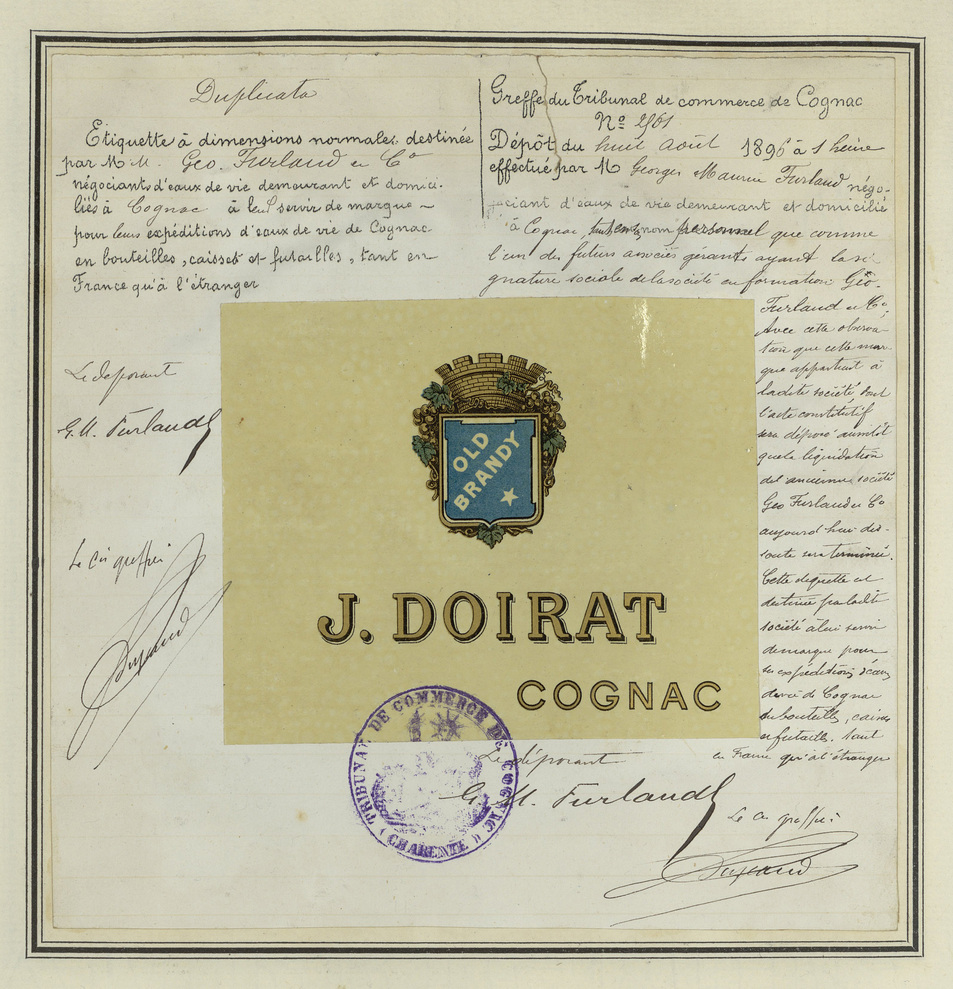 Duplicata
Etiquette à dimensions normales destinée
par M M. Geo. Furlaud et Cº
négociants d'eaux de vie demeurant et domici-
liés à Cognac à leur servir de marque
pour leurs expéditions d'eaux de vie de Cognac
en bouteilles, caisses et futailles, tant en
France qu'à l'étranger
Le déposant
G. M. Furlaud
Le Cis greffier
Greffe du Tribunal de commerce de Cognac
Nº 2961
Dépôt du huit Août 1896 à 1 heure
effectué par M Georges Maurice Furlaud négo-
ciant d'eaux de vie demeurant et domicilié
à Cognac, tant en nom personnel que comme
l'un des futurs associés gérants ayant la si
gnature sociale de la société en formation Geo.
Furlaud et Cº,
Avec cette observa
tion que cette mar-
que appartient à
ladite société dont
l'acte constitutif
sera déposé aussitôt
que la liquidation
de l'ancienne société
Geo Furlaud et Cº
aujourd'hui dis-
soute sera terminée.
Cette étiquette est
destinée par ladite
société à lui servir
de marque pour
ses expéditions d'eaux
de vie de Cognac
en bouteilles, caisses
et futailles, tant
en France qu'à l'étranger
OLD
BRANDY
J. DOIRAT
COGNAC
TRIBUNAL DE COMMERCE DE COGNAC
(CHARENTE)
Le déposant
G. M. Furlaud
Le Cis greffier